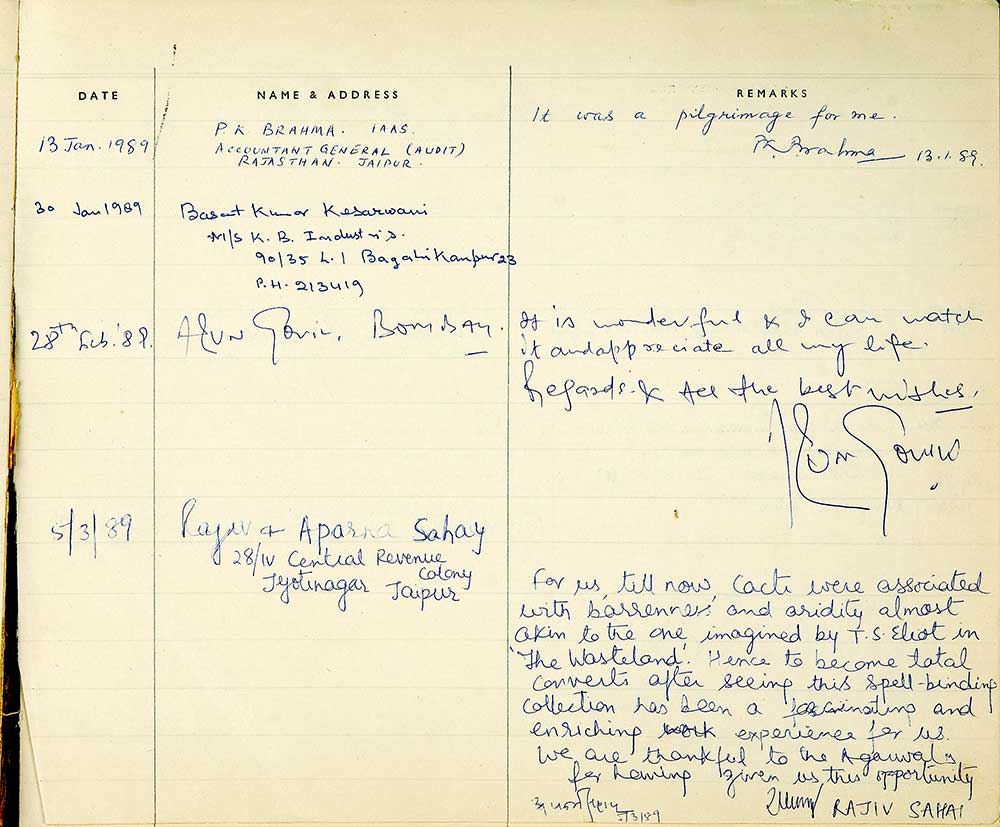 DATE NAME & ADDRESS REMARKS
13 Jan. 1989
P. K BRAHMA. IAAS.
ACCOUNTANT GENERAL (AUDIT)
RAJASTHAN. JAIPUR.
It was a pilgrimage for me.
P.K. Brahma 13.1.89.
30 Jan 1989
Basant Kumar Kesarwani
M/S K. B. Industris.
90/35 L. I Bagahi Kanpur 23
P.H. 213419
28th Feb. '89.
Arun Govil, BOMBAY.
It is wonderful & I can watch
it and appreciate all my life.
Regards & All the best wishes.
Arun Govil
5/3/89
Rajiv & Aparna Sahay
28/IV Central Revenue
Colony
Jyotinagar Jaipur
For us, till now, Cacti were associated
with barrenness and aridity almost
akin to the one imagined by T.S. Eliot in
'The Wasteland'. Hence to become total
converts after seeing this spell-binding
collection has been a fascinating and
enriching work experience for us.
We are thankful to the Agarwals
for having given us this opportunity
5/3/89
RAJIV SAHAI